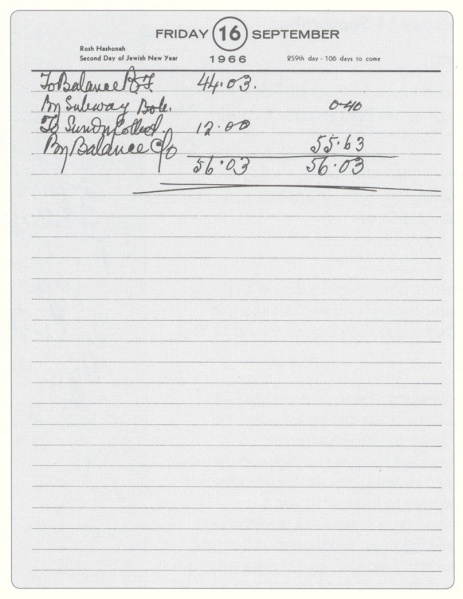 FRIDAY 16 SEPTEMBER
Rosh Hashonah
Second Day of Jewish New Year 1966 259th day - 106 days to come
To Balance B/F. 44.03.
By Subway 0-40
To Sundry 12.00
By Balance C/o 55.63
56.03 56.03